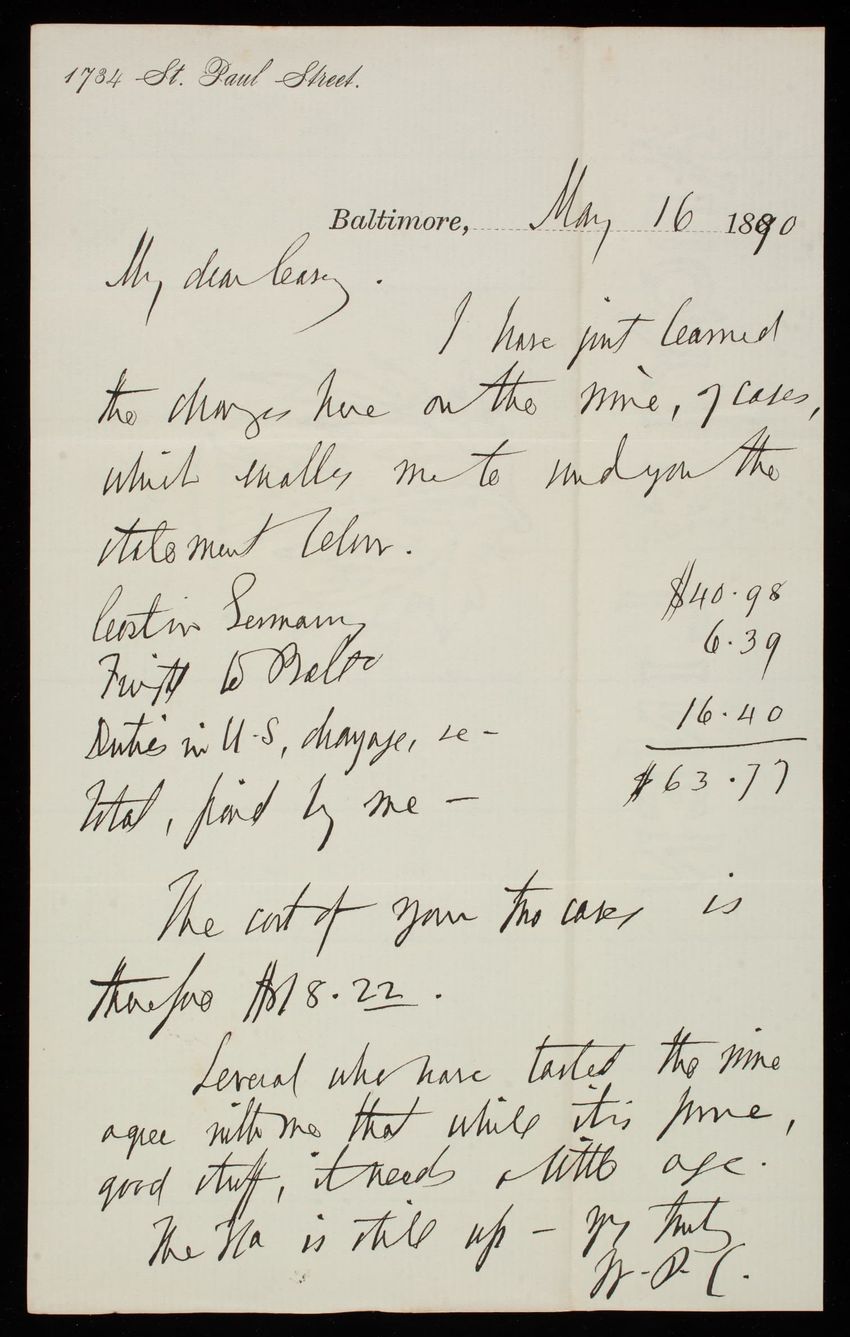 1734 St. Paul Street.
Baltimore, May 16 1890
My dear Casey.
I have just learned
the charges here on the wine, 7 cases,
which enables me to send you the
statement below.
Cost in Germany $40.98
Frght to Balto 6.39
Duties in U.S, drayage, &c - 16.40
Total, paid by me - $63.77
The cost of your two cases is
therefore $18.22.
Several who have tasted the wine
agree with me that while it is pure,
good stuff, it needs a little age.
The is still up - Yrs truly
W. P. C.